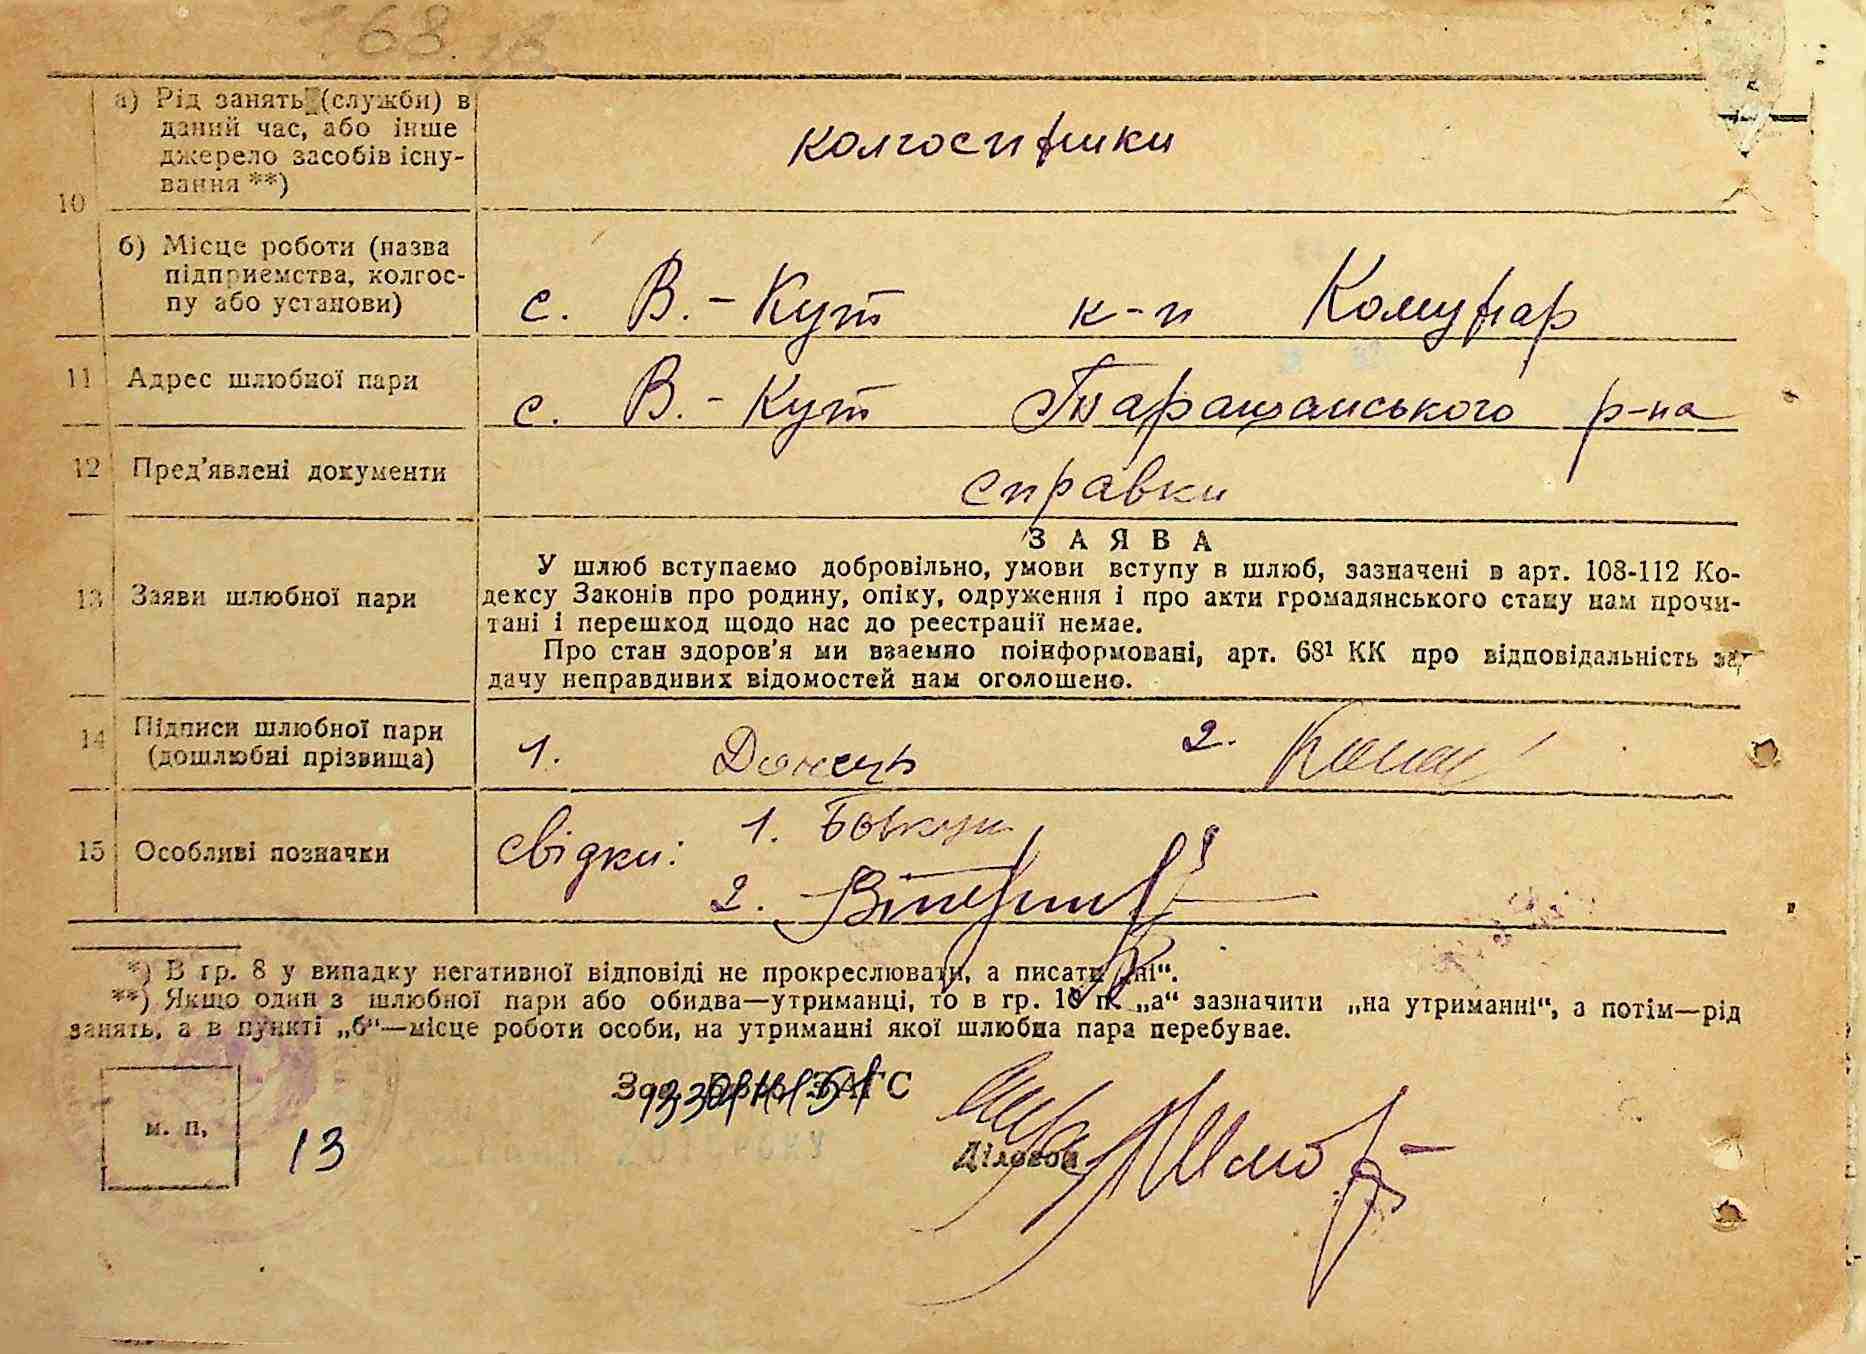 168.
а) Рід занять (служби) в
даний час, або інше
джерело засобів існу-
вання **)
колгоспники
10
б) Місце роботи (назва
підприємства, колгос-
пу або установи)
с. В.-Кут к-п Комунар
11 Адрес шлюбної пари
с. В.-Кут Таращанського р-на
12 Пред'явлені документи
справки
13 Заяви шлюбної пари
ЗАЯВА
У шлюб вступаємо добровільно, умови вступу в шлюб, зазначені в арт. 108-112 Ко-
дексу Законів про родину, опіку, одруження і про акти громадянського стану нам прочи-
тані і перешкод щодо нас до реєстрації немає.
Про стан здоров'я ми взаємно поінформовані, арт. 68¹ КК про відповідальність за
дачу неправдивих відомостей нам оголошено.
14 Підписи шлюбної пари
(дошлюбні прізвища)
1. Донець 2.
15 Особливі позначки
свідки: 1.
2.
*) В гр. 8 у випадку негативної відповіді не прокреслювати, а писати „ні“.
**) Якщо один з шлюбної пари або обидва—утриманці, то в гр. 10 п. „а“ зазначити „на утриманні“, а потім—рід
занять, а в пункті „б“—місце роботи особи, на утриманні якої шлюбна пара перебуває.
Зав. Бюро ЗАГС
м. п.
13
Діловод